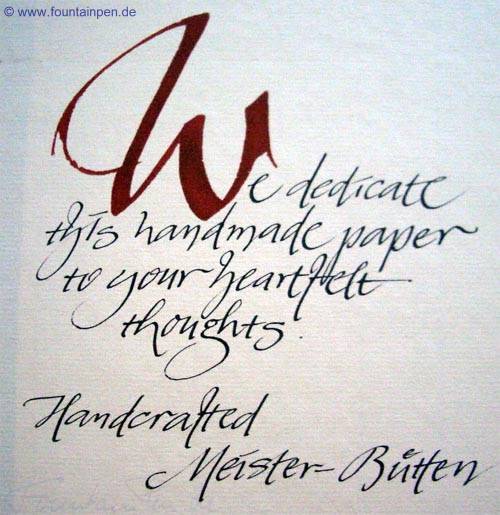 © www.fountainpen.de
We dedicate
this handmade paper
to your heartfelt
thoughts.
Handcrafted
Meister-Bütten